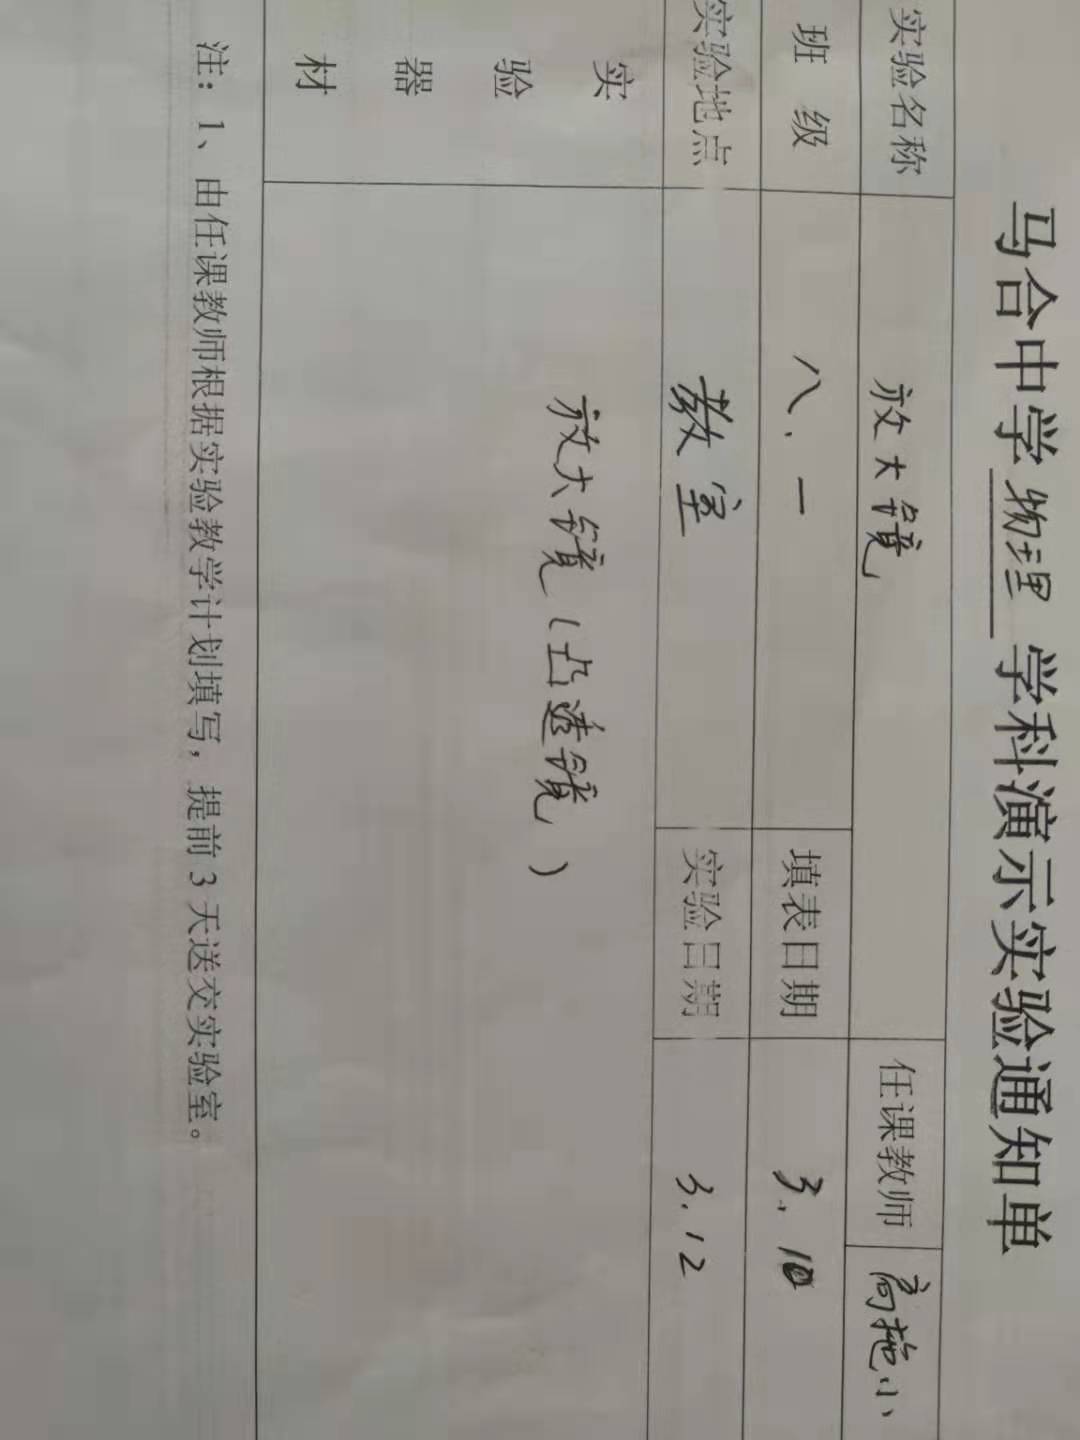 马合中学物理学科演示实验通知单
实验名称 放大镜 任课教师 高拖小
班级 八.一 填表日期 3.10
实验地点 教室 实验日期 3.12
实验器材 放大镜(凸透镜)
注：1、由任课教师根据实验教学计划填写，提前3天送交实验室。